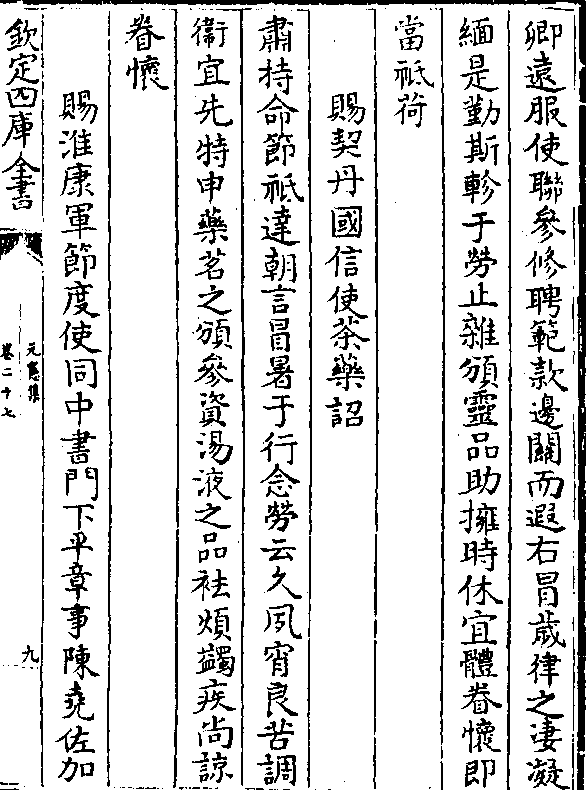 卿遠服使聯參修聘範款邊闗而遐右冒歲律之凄凝
緬是勤斯軫于勞止雜頒靈品助擁時休宜體眷懷即
當祗荷
賜契丹國信使茶藥詔
肅持命節祗達朝言冒暑于行念勞云久夙宵良苦調
衛宜先特申藥茗之頒參資湯液之品袪煩蠲疾尚諒
眷懷
賜淮康軍節度使同中書門下平章事陳堯佐加
欽定四庫全書
元憲集
卷二十七
九